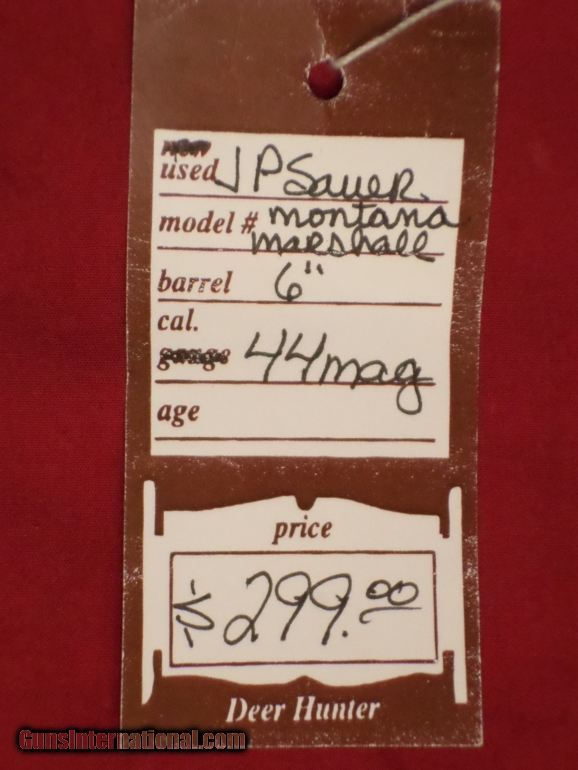 used JP Sauer.
model # montana
marshall
barrel 6"
cal.
44 mag
age
price
$299.00
Deer Hunter
GunsInternational.com